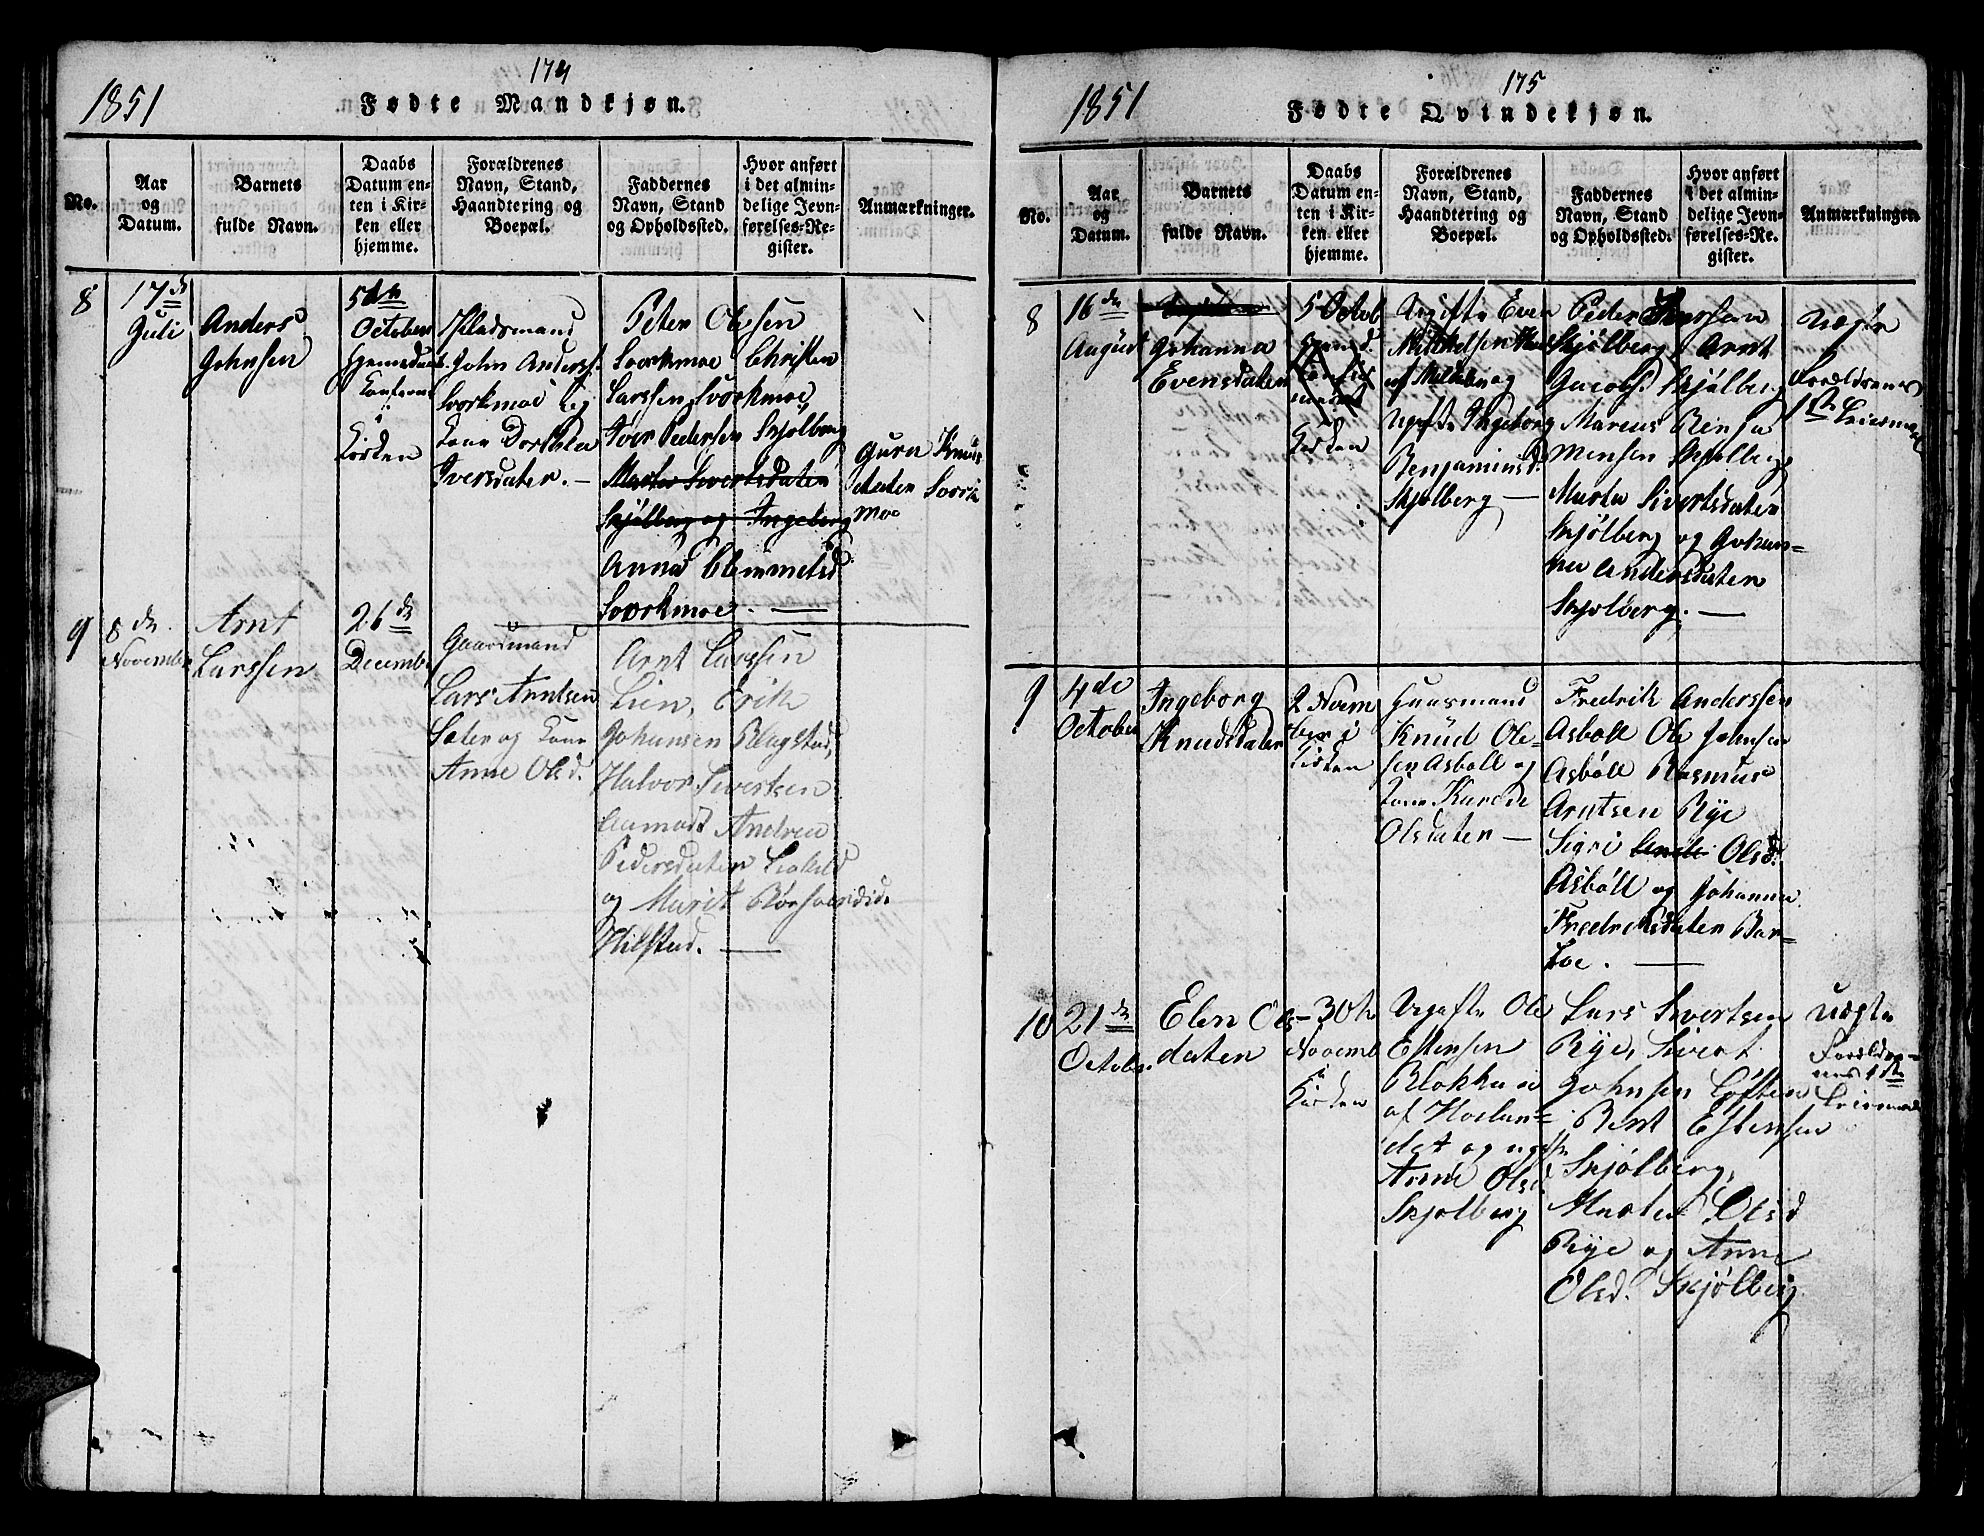 174
1851
Fødte Mandkjøn.
No.
Aar
og
Datum.
Barnets
fulde Navn.
Daabs
Datum en-
ten i Kir-
ken eller
hjemme.
Forældrenes
Navn, Stand,
Haandtering og
Boepæl.
Faddernes
Navn, Stand
og Opholdssted.
Hvor anført
i det almin-
delige Jevn-
førelses-Re-
gister.
Anmærkninger.
8
17de
Juli
Anders
Johnsen
5te
October
i
Kirken
Pladsmand
John Anderss.
Svorkmoe og
Kone Dorthea
Iversdater. —
Peter Olsen
Svorkmoe Christen
Larssen Svorkmoe,
Iver Pedersen Skjølberg
Marta Sivertsdaten
Skjølberg og Ingeborg
Anna Clemmetsd
Svorkmoe. —
Guru Knuds
daten Svork
moe
9
8de
November
Arnt
Larssen
26de
Decemb.
Gaardmand
Lars Arntsen
Sæter og Kone
Anne Olsd.
Arnt Larssen
Lien, Erik
Johansen Blagstad,
Halvor Sivertsen
Aamodt Andrea
Pedersdaten
og Marit
Hilstad. —
175
1851
Fødte Qvindekjøn.
No.
Aar
og
Datum.
Barnets
fulde Navn.
Daabs
Datum en-
ten i Kir-
ken eller
hjemme.
Forældrenes
Navn, Stand,
Haandtering og
Boepæl.
Faddernes
Navn, Stand
og Opholdssted.
Hvor anført
i det almin-
delige Jevn-
førelses-Re-
gister.
Anmærkninger.
8
16de
August
Johanna
Evensdaten
5 Octob
Kirken
Ugifte Even
af Melbve og
Ugifte Ingeborg
Benjaminsd.
Skjølberg —
Peder
Skjølberg, Arnt
Jacobsd Skjølberg
Marcus Benja
mensen Skjølberg
Marta Sivertsdaten
Skjølberg og Johan=
na Andersdaten
Skjølberg. —
Uægte
Forældrenes
1ste Leiermaal
9
4de
October
Ingeborg
Knudsdaten
2 Novem
ber i
Kirken
Huusmand
Knud Ole-
sen Asböll og
Kone Karen
Olsdaten —
Fredrik Anderssen
Asböll Ole Johnsen
Asböll Rasmus
Arntsen Rye
Sigri Olsd.
Asböll og Johanna
Fredriksdaten Bar-
Koe. —
10
21de
October
Elen Ols-
daten
30te
Novemb
i
Kirken
Ugifte Ole
Estensen
Blokku
af Hoelan-
det og ugifte
Anne Olsd
Skjølberg
Lars Sivertsen
Rye, Sivert
Johnsen Löften
Bent Estensen
Skjølberg,
Marta Olsd
Rye og Anne
Olsd. Skjølberg
Uægte
Forældre-
nes 1ste
Leiermaal